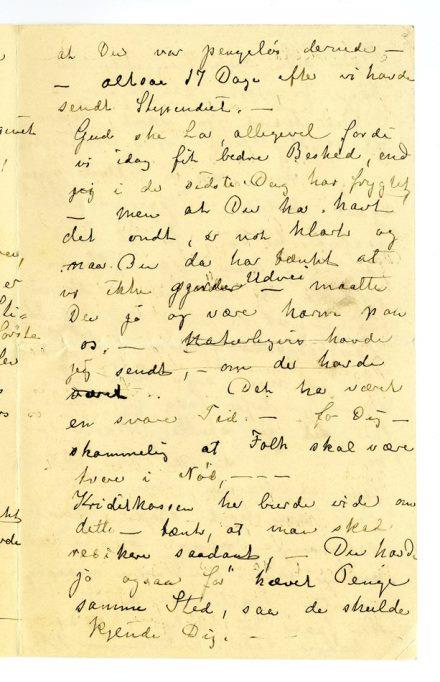 at Du var pengeløs dernede –
– altsaa 17 Dage efter vi havde
sendt Stipendiet. –
Gud ske Lov, allegevel fordi
vi idag fik bedre Besked, end
jeg i de sidste Dag har frygtet,
– men at Du har havt
det ondt, er nok klart og
naar Du da har tænkt at
vi ikke Udvei – maatte
Du jo og være harm paa
os, – Naturligvis havde
jeg sendt, – om der havde
været .. Det har været
en svær Tid. – for Dig –
skammelig at Folk skal være
tvere i Nød, – – –
Kriditkassen har burde vide om
dette – tænk, at man skal
resikere saadant, – Du havde
jo ogsaa før hævet Penge
samme Sted, saa de skulde
kjende Dig. –